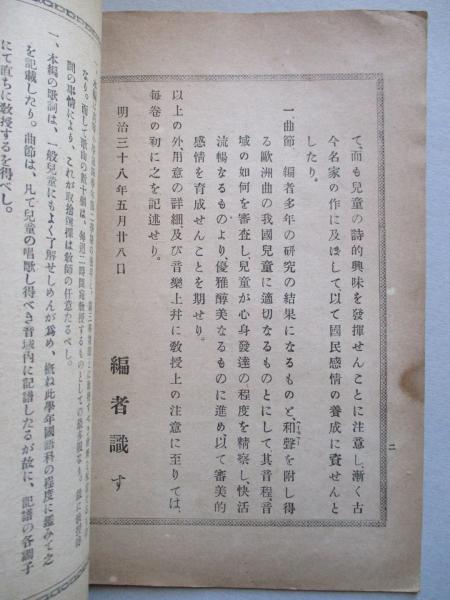 て、而も兒童の詩的興味を發揮せんことに注意し、漸く古
今名家の作に及ぼして、以て國民感情の養成に資せんと
したり。
一、曲節 編者多年の研究の結果になるものと、和聲を附し得
る歐洲曲の我國兒童に適切なるものとにして、其音程、音
域の如何を審査し、兒童が心身發達の程度を精察し、快活
流暢なるものより、優雅醇美なるものに進め、以て審美的
感情を育成せんことを期せり。
以上の外、用意の詳細、及び音樂上幷に教授上の注意に至りては、
毎卷の初に之を記述せり。
明治三十八年五月廿八日
編者識す
二
なり。而して歌曲の數十個は、毎週二時間宛教授するものとしての
間の事情により、これが取捨選擇は教師の任意たるべし。
一、本編の歌詞は、一般兒童にもよく了解せしめんが爲め、概ね此學年國語科の程度に鑑みて之
を記載したり。曲節は、凡て兒童の唱歌し得べき音域內に記譜したるが故に、記譜の各調子
にて直ちに教授するを得べし。